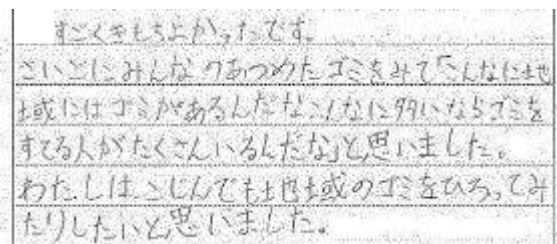 すごくきもちよかったです。
さいごにみんなのあつめたゴミをみて「こんなに地
域にはゴミがあるんだな、こんなに多いならゴミを
すてる人がたくさんいるんだな」と思いました。
わたしは、こじんでも地域のゴミをひろってみ
たりしたいと思いました。